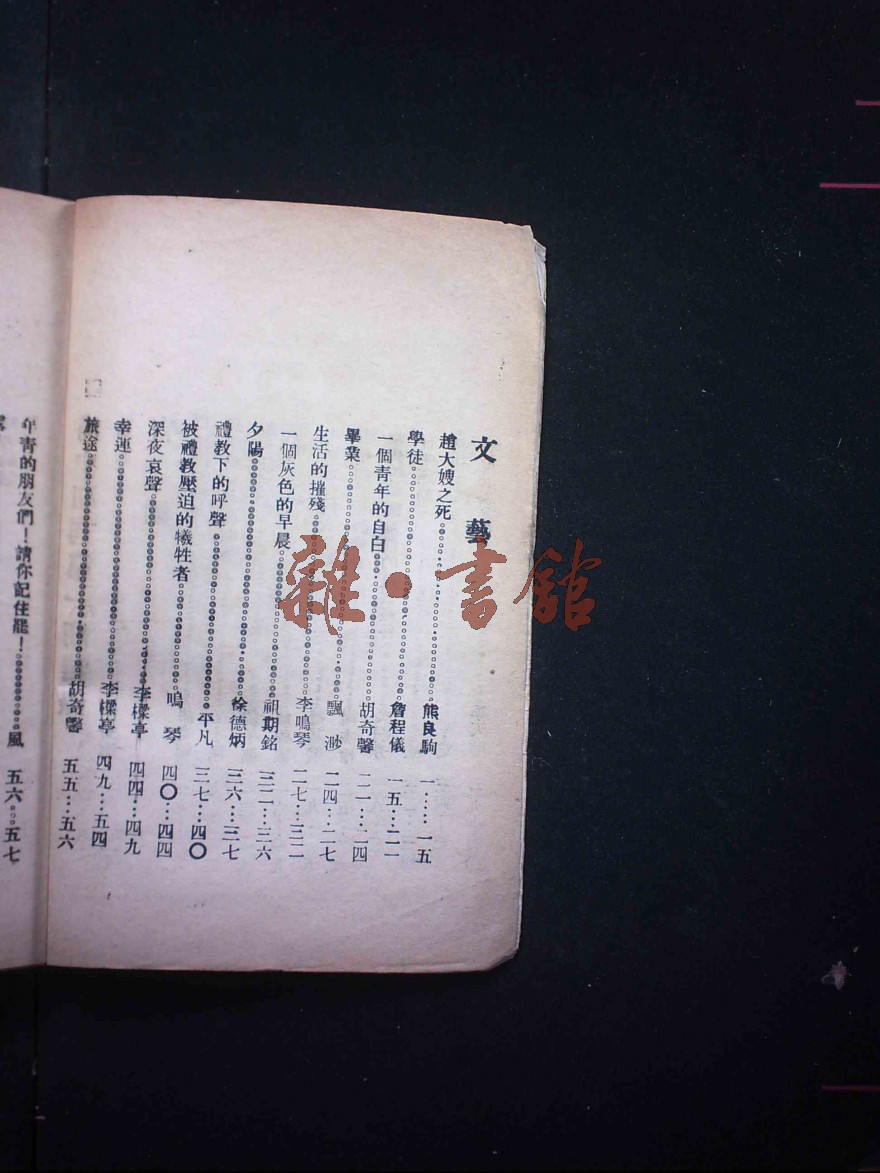 文藝
趙大嫂之死………熊良駒 一……一五
學徒………詹程儀 一五…二一
一個青年的自白………胡奇馨 二一…二四
畢業………飄渺 二四…二七
生活的摧殘………李鳴琴 二七…三二
一個灰色的早晨………祖期銘 三二…三六
夕陽………徐德炳 三六…三七
禮教下的呼聲………平凡 三七…四〇
被禮教壓迫的犧牲者………鳴琴 四〇…四四
深夜哀聲………李樑亭 四四…四九
幸運………李樑亭 四九…五四
旅途………胡奇馨 五五…五六
年青的朋友們!請你記住罷!………風 五六…五七
雜·書館